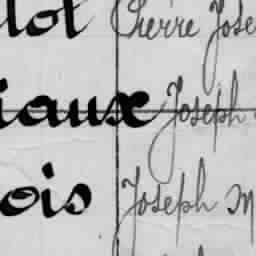 lot Pierre Jose
iaux Joseph
ois Joseph M